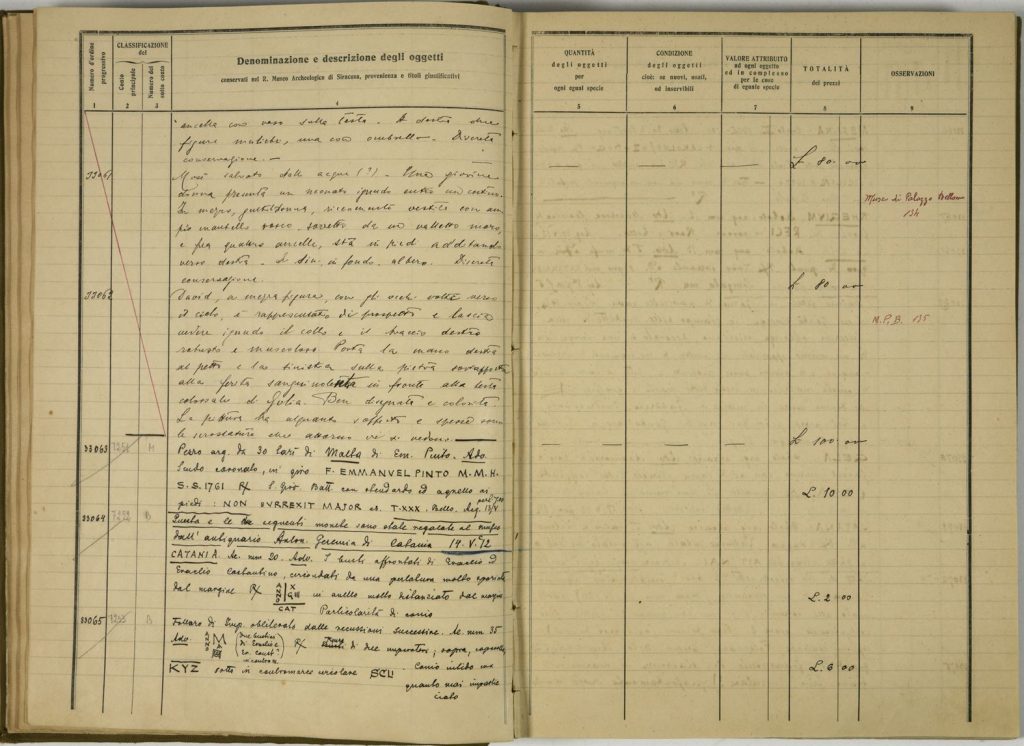 Numero d'ordine progressivo
CLASSIFICAZIONE del
Conto principale
Numero del sotto conto
Denominazione e descrizione degli oggetti
conservati nel R. Museo Archeologico di Siracusa, provenienza e titoli giustificativi
1 2 3 4
QUANTITÀ degli oggetti per ogni egual specie
CONDIZIONE degli oggetti cioè: se nuovi, usati, od inservibili
VALORE ATTRIBUITO ad ogni oggetto ed in complesso per le cose di eguale specie
TOTALITÀ dei prezzi
OSSERVAZIONI
5 6 7 8 9
ancella con vaso sulla testa. A destra due
figure, una con ombrello. Discreta
conservazione. —
— — — L. 80.00
33061 Mosè salvato dalle acque (?) - Una giovine
donna presenta un neonato ignudo entro un
In mezzo, gentildonna, riccamente vestita con am
pio mantello rosso, sorretto da un valletto moro,
e fra quattro ancelle, sta in piedi additando
verso destra. A sin. in fondo, albero. Discreta
conservazione.
L. 80.00
Museo di Palazzo Bellomo
134
33062 David, a mezza figura, con gli occhi volti verso
il cielo, è rappresentato di prospetto e lascia
vedere ignudo il collo e il braccio destro
robusto e muscoloso. Porta la mano destra
al petto e la sinistra sulla pietra
alla ferita sanguinolenta in fronte alla testa
colossale di Golia. Ben disegnata e colorita.
La pittura ha alquanto sofferto e
le scrostature che attorno vi si vedono.
— — — L. 100.00
M.P.B. 135
33063 7251 M Pezzo arg. da 30 tarì di Malta di Em. Pinto. Ado.
Scudo coronato, in giro F. EMMANVEL PINTO M.M.H.
S.S. 1761 R/ S. Giov. Batt con stendardo ed agnello ai
piedi: NON SVRREXIT MAJOR es. T·XXX. Bello.
L. 10 00
33064 7252 B Questa e le seguenti monete sono state regalate al museo
dall'antiquario Anton. Geremia di Catania 19.V.912
CATANIA. Ae. mm 20. Ado. I busti affrontati di Eraclio ed
Eraclio Costantino, circondati da una perlatura molto
dal margine R/ ANNO X CIII in anello molto distanziato dal margine
CAT Particolarità di conio
L. 2 00
33065 7253 B Follaro di Imp. obliterato dalle recussioni successive. Ae. mm 35
Ado. ANNO M (due bustini di Eraclio e Er. Cost. in contorno) R/ di due imperatori; sopra,
KYZ sotto in contromarco circolare SCL Conio nitido ma
quanto mai
ciato
L. 6 00